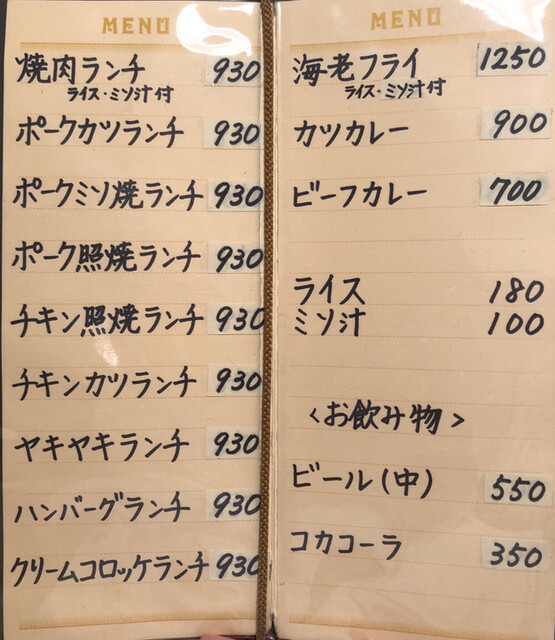 MENU
焼肉ランチ 930
ライス・ミソ汁付
ポークカツランチ 930
ポークミソ焼ランチ 930
ポーク照焼ランチ 930
チキン照焼ランチ 930
チキンカツランチ 930
ヤキヤキランチ 930
ハンバーグランチ 930
クリームコロッケランチ 930
MENU
海老フライ 1250
ライス・ミソ汁付
カツカレー 900
ビーフカレー 700
ライス 180
ミソ汁 100
<お飲み物>
ビール(中) 550
コカコーラ 350